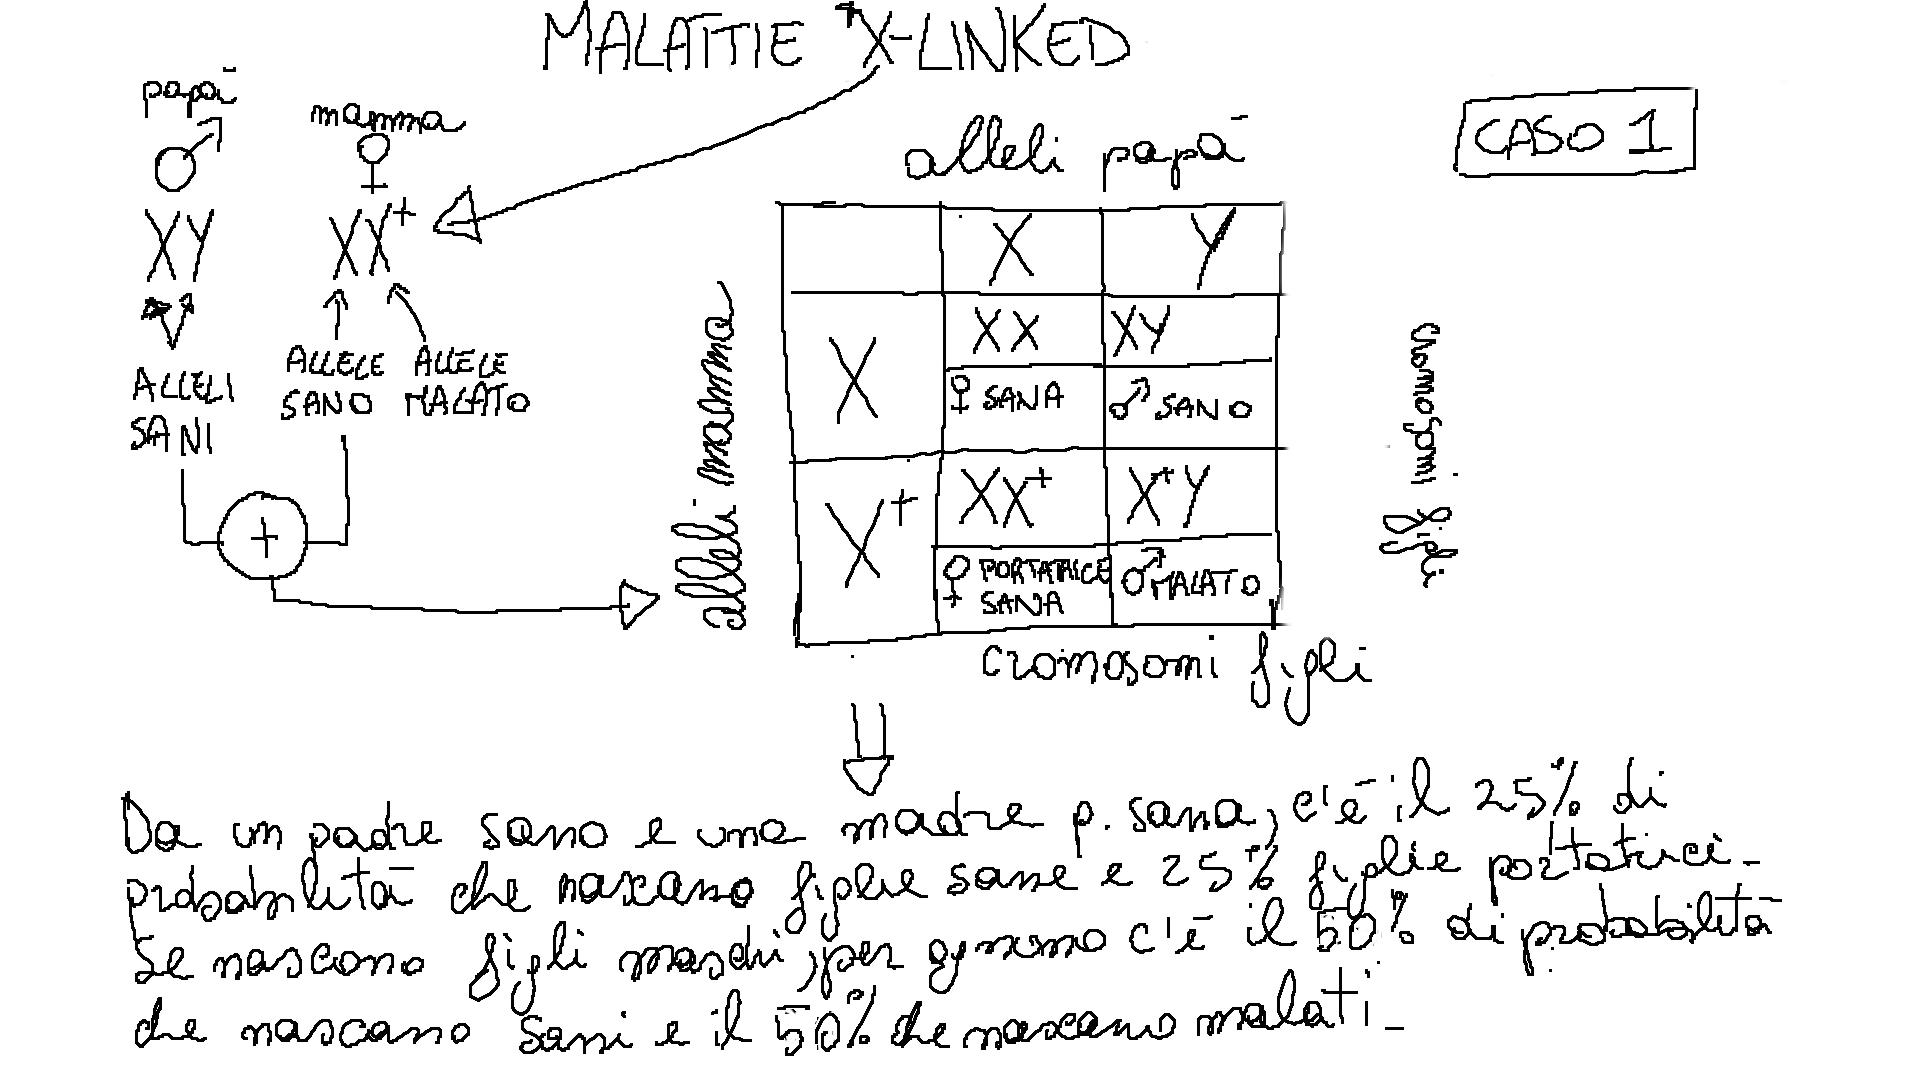 MALATTIE X-LINKED
papà
mamma
XY
XX+
ALLELI
SANI
ALLELE
SANO
ALLELE
MALATO
+
CASO 1
alleli papà
alleli mamma
X Y
X
XX XY
♀ SANA ♂ SANO
X+
XX+ X+Y
♀ PORTATRICE
SANA
♂ MALATO
cromosomi figli
cromosomi figli
Da un padre sano e una madre p. sana, c'è il 25% di
probabilità che nascano figlie sane e 25% figlie portatrici.
Se nascono figli maschi, per ognuno c'è il 50% di probabilità
che nascano sani e il 50% che nascano malati.